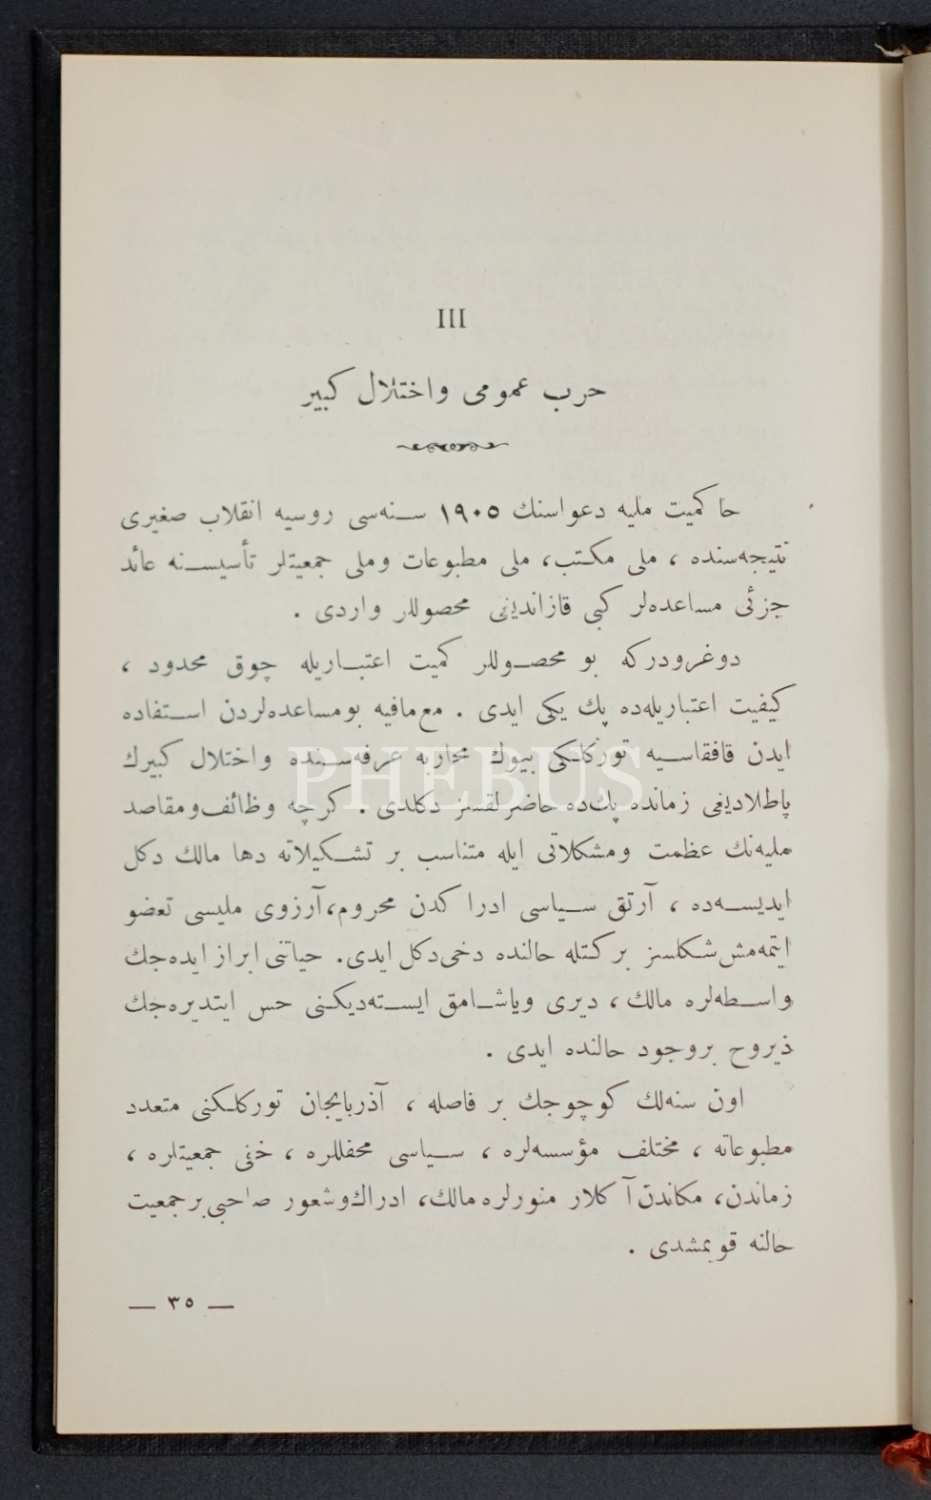 III
حرب عمومی واختلال كبیر
حاكمیت ملیه دعواسنك ١٩٠٥ سنه‌سی روسیه انقلاب صغیری
نتیجه‌سنده ، ملی مكتب، ملی مطبوعات وملی جمعیتلر تأسیسنه عائد
جزئی مساعده‌لر كبی قازاندیغی محصوللر واردی .
دوغرودركه بو محصوللر كمیت اعتباریله چوق محدود ،
كیفیت اعتباریله‌ده پك یكی ایدی . مع‌مافیه بومساعده‌لردن استفاده
ایدن قافقاسیه توركلكی بیوك محاربه عرفه‌سنده واختلال كبیرك
پاطلادیغی زمانده پك‌ده حاضرلقسز دكلدی . كرچه وظائف‌ومقاصد
ملیه‌نك عظمت ومشكلاتی ایله متناسب بر تشكیلاته دها مالك دكل
ایدیسه‌ده ، آرتق سیاسی ادراكدن محروم،آرزوی ملیسی تعضو
ایتمه‌مش‌شكلسز بركتله حالنده دخی‌دكل ایدی. حیاتنی ابراز ایده‌جك
واسطه‌لره مالك ، دیری ویاشامق ایسته‌دیكنی حس ایتدیره‌جك
ذیروح بروجود حالنده ایدی .
اون سنه‌لك كوچوجك بر فاصله ، آذربایجان توركلكنی متعدد
مطبوعاته ، مختلف مؤسسه‌لره ، سیاسی محفللره ، خفی جمعیتلره ،
زماندن، مكاندن آكلار منورلره مالك، ادراك‌وشعور صاحبی‌برجمعیت
حالنه قویمشدی .
— ٣٥ —
PHEBUS